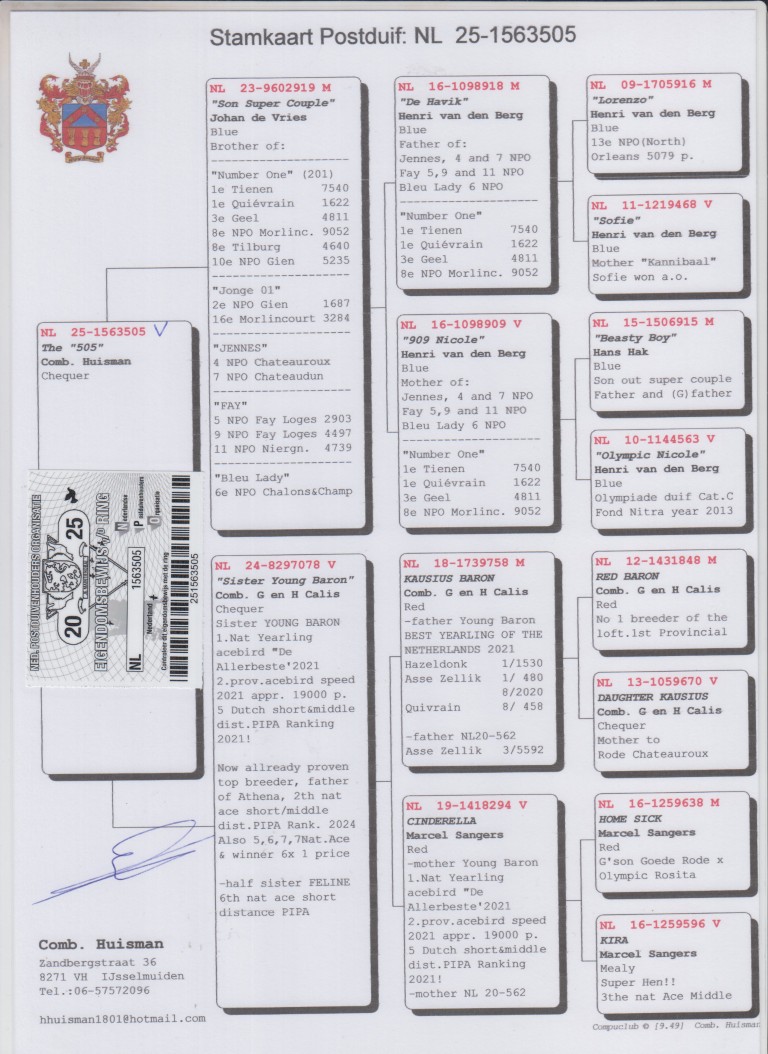 Stamkaart Postduif: NL 25-1563505
NL 25-1563505 V
The "505"
Comb. Huisman
Chequer
NED. POSTDUIVENHOUDERS ORGANISATIE
20 25
EIGENDOMSBEWIJS v/d RING
Nederlandse
Postduivenhouders
Organisatie
NL 1563505
Nederland
Controleer dit eigendomsbewijs met de ring
251563505
NL 23-9602919 M
"Son Super Couple"
Johan de Vries
Blue
Brother of:
"Number One" (201)
1e Tienen 7540
1e Quiévrain 1622
3e Geel 4811
8e NPO Morlinc. 9052
8e Tilburg 4640
10e NPO Gien 5235
"Jonge 01"
2e NPO Gien 1687
16e Morlincourt 3284
"JENNES"
4 NPO Chateauroux
7 NPO Chateaudun
"FAY"
5 NPO Fay Loges 2903
9 NPO Fay Loges 4497
11 NPO Niergn. 4739
"Bleu Lady"
6e NPO Chalons&Champ
NL 24-8297078 V
"Sister Young Baron"
Comb. G en H Calis
Chequer
Sister YOUNG BARON
1.Nat Yearling
acebird "De
Allerbeste'2021
2.prov.acebird speed
2021 appr. 19000 p.
5 Dutch short&middle
dist.PIPA Ranking
2021!
Now allready proven
top breeder, father
of Athena, 2th nat
ace short/middle
dist.PIPA Rank. 2024
Also 5,6,7,7Nat.Ace
& winner 6x 1 price
-half sister FELINE
6th nat ace short
distance PIPA
NL 16-1098918 M
"De Havik"
Henri van den Berg
Blue
Father of:
Jennes, 4 and 7 NPO
Fay 5,9 and 11 NPO
Bleu Lady 6 NPO
"Number One"
1e Tienen 7540
1e Quiévrain 1622
3e Geel 4811
8e NPO Morlinc. 9052
NL 16-1098909 V
"909 Nicole"
Henri van den Berg
Blue
Mother of:
Jennes, 4 and 7 NPO
Fay 5,9 and 11 NPO
Bleu Lady 6 NPO
"Number One"
1e Tienen 7540
1e Quiévrain 1622
3e Geel 4811
8e NPO Morlinc. 9052
NL 18-1739758 M
KAUSIUS BARON
Comb. G en H Calis
Red
-father Young Baron
BEST YEARLING OF THE
NETHERLANDS 2021
Hazeldonk 1/1530
Asse Zellik 1/ 480
8/2020
Quivrain 8/ 458
-father NL20-562
Asse Zellik 3/5592
NL 19-1418294 V
CINDERELLA
Marcel Sangers
Red
-mother Young Baron
1.Nat Yearling
acebird "De
Allerbeste'2021
2.prov.acebird speed
2021 appr. 19000 p.
5 Dutch short&middle
dist.PIPA Ranking
2021!
-mother NL 20-562
NL 09-1705916 M
"Lorenzo"
Henri van den Berg
Blue
13e NPO(North)
Orleans 5079 p.
NL 11-1219468 V
"Sofie"
Henri van den Berg
Blue
Mother "Kannibaal"
Sofie won a.o.
NL 15-1506915 M
"Beasty Boy"
Hans Hak
Blue
Son out super couple
Father and (G)father
NL 10-1144563 V
"Olympic Nicole"
Henri van den Berg
Blue
Olympiade duif Cat.C
Fond Nitra year 2013
NL 12-1431848 M
RED BARON
Comb. G en H Calis
Red
No 1 breeder of the
loft.1st Provincial
NL 13-1059670 V
DAUGHTER KAUSIUS
Comb. G en H Calis
Chequer
Mother to
Rode Chateauroux
NL 16-1259638 M
HOME SICK
Marcel Sangers
Red
G'son Goede Rode x
Olympic Rosita
NL 16-1259596 V
KIRA
Marcel Sangers
Mealy
Super Hen!!
3the nat Ace Middle
Comb. Huisman
Zandbergstraat 36
8271 VH IJsselmuiden
Tel.:06-57572096
hhuisman1801@hotmail.com
Compuclub © [9.49] Comb. Huisman